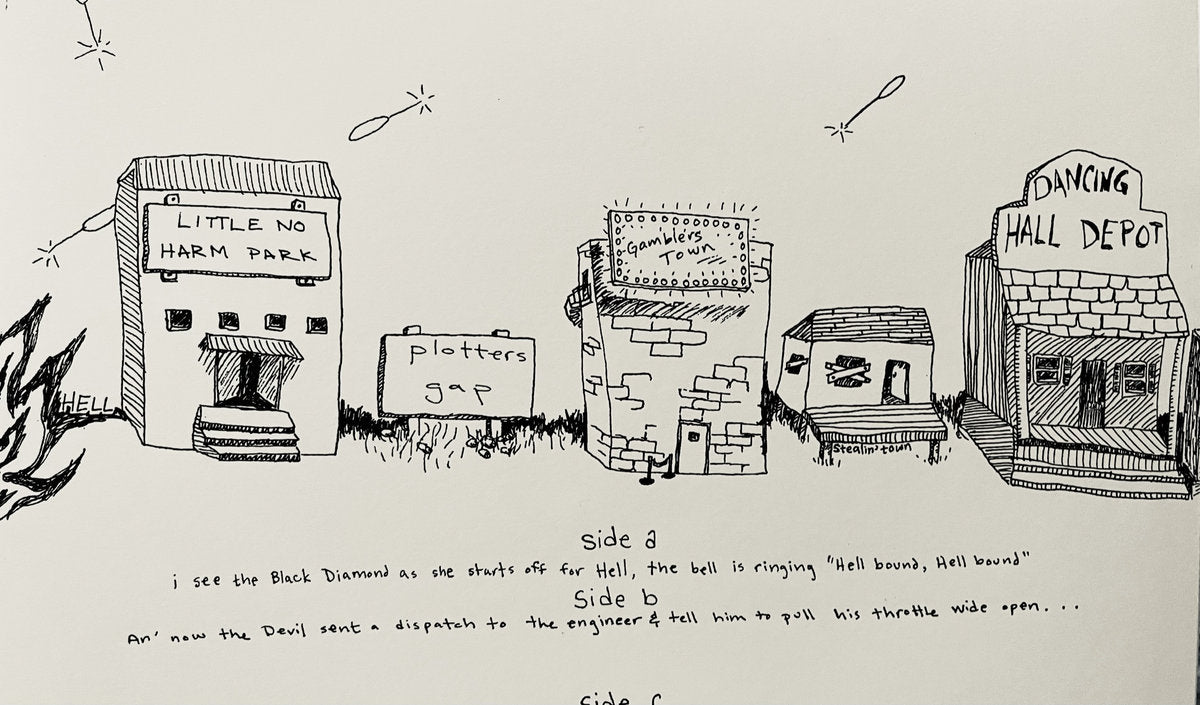 LITTLE NO
HARM PARK
HELL
plotters
gap
Gamblers
Town
Stealin' town
DANCING
HALL DEPOT
side a
i see the Black Diamond as she starts off for Hell, the bell is ringing "Hell bound, Hell bound"
Side b
An' now the Devil sent a dispatch to the engineer & tell him to pull his throttle wide open. . .
side c